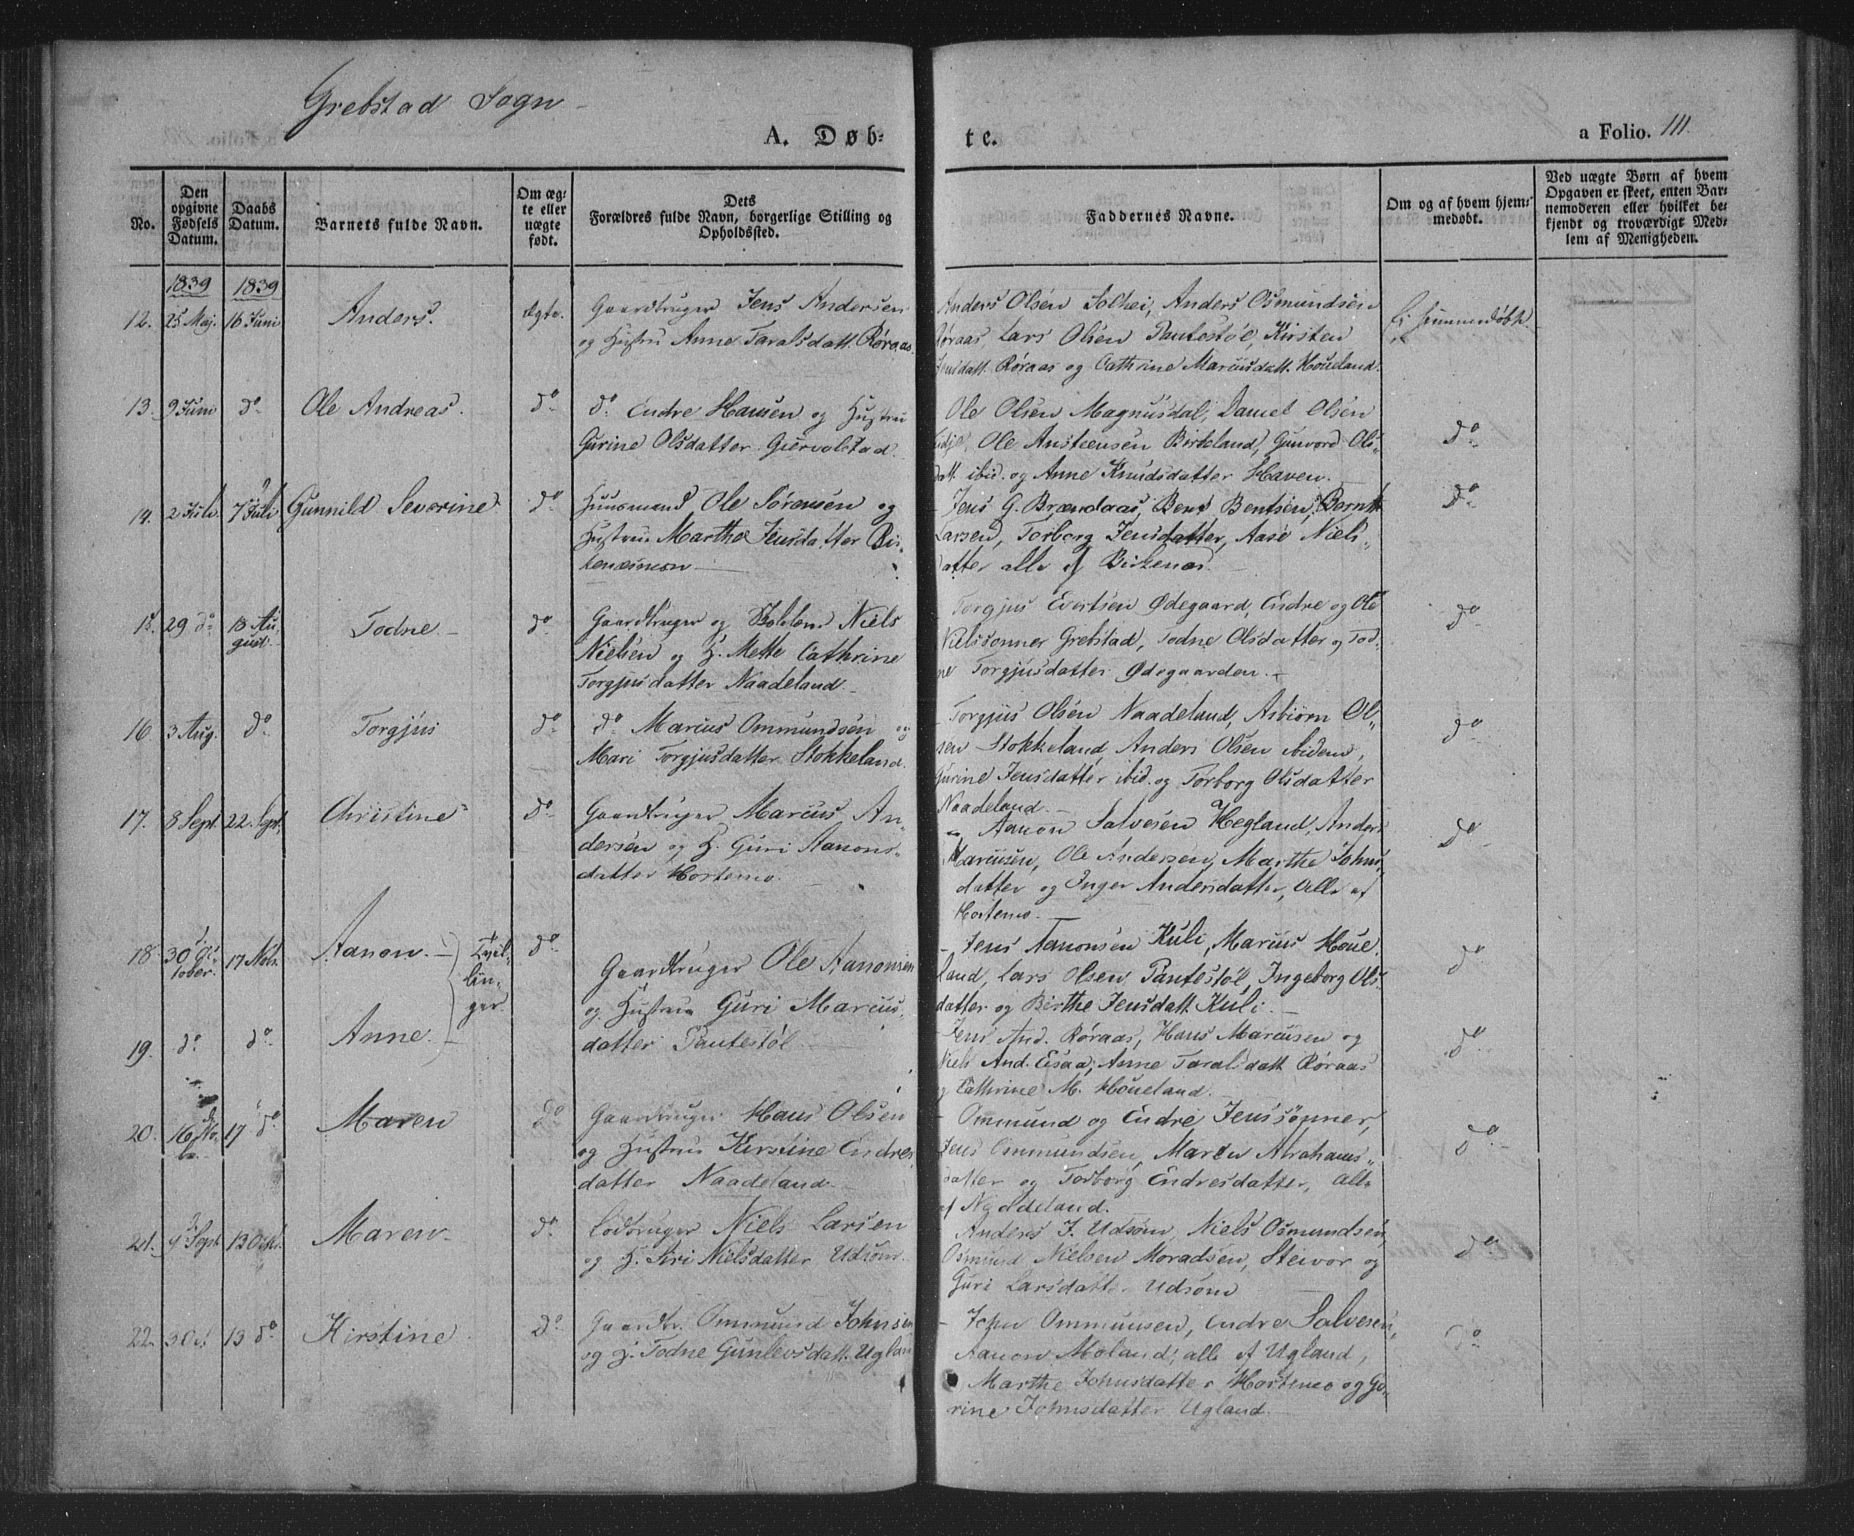 Grebstad Sogn
A. Døb-
te.
a Folio. 111.
No.
Den opgivne Fødsels Datum.
Daabs Datum.
Barnets fulde Navn.
Om ægte eller uægte født.
Dets
Forældres fulde Navn, borgerlige Stilling og
Opholdssted.
Faddernes Navne.
Om og af hvem hjemmedøbt.
Ved uægte Børn af hvem
Opgaven er skeet, enten Bar-
nemoderen eller hvilket be-
kjendt og troværdigt Med-
lem af Menigheden.
1839 1839
12. 25 Maj. 16 Juni Anders. ægte.
Gaardbruger Jens Andersen
og Hustru Anne Taralsdatt. Røraas.
Anders Olsen Solhei, Anders Osmundsen
Røraas Lars Olsen Pantestøl, Kirsten
Jensdatt. Røraas og Cathrine Marcusdatt. Houeland.
Ei hjemmedøbt.
13. 9 Juni do Ole Andreas. do
do Endre Hansen og Hustru
Gurine Olsdatter Giervolstad.
Ole Olsen Magnusdal, Daniel Olsen
Ole Anstensen Birkeland, Gunvord Ols-
datt ibid. og Anne Knudsdatter Haven.
do
14. 2 Juli 7 Juli Gunnild Severine do
Huusmand Ole Sørensen og
Hustru Marthe Jensdatter Bir-
kenæsmoen
Jens G. Brændaas, Bent Bentsen, Bernt
Larsen, Torborg Jensdatter, Aase Niels-
datter alle af Birkenæs.
do
15. 29 do 18 Au-
gust. Todne. do
Gaardbruger og Niels
Nielsen og H. Mette Cathrine
Torgjusdatter Naadeland.
Torgjus Evertsen Ødegaard, Endre og Ole
Nielssønner Grebstad, Todne Olsdatter og Tod-
ne Torgjusdatter Ødegaarden.
do
16. 3 Aug. do Torgjus do
do Marcus Ommundsen og
Mari Torgjusdatter Stokkeland.
Torgjus Olsen Naadeland, Asbiørn Ol-
sen Stokkeland, Anders Olsen ibidem,
Gurine Jensdatter ibid. og Torborg Olsdatter
Naadeland.
do
17. 8 Sept 22 Sept. Christine do
Gaardbruger Marcus An-
dersen og H. Guri Aanons-
datter Hortemo.
Aanon Salvesen Hegland, Anders
Marcusen, Ole Andersen, Marthe Johns-
datter og Inger Andersdatter, Alle af
Hortemo.
do
18. 30 Oc-
tober. 17 Nov. Aanon. Tvil-
lin-
ger. do
Gaardbruger Ole Aanonsen
og Hustru Guri Marcus-
datter Pantestøl.
Jens Aanonsen Kuli, Marcus Houe-
land, Lars Olsen Pantestøl, Ingeborg Ols-
datter og Birthe Jensdatt. Kuli.
do
19. do do Anne.
Jens And. Røraas, Hans Marcusen og
Niels And. Eisaa, Anne Taralsdatt Røraas
og Cathrine M. Houeland.
do
20. 17 do Maren do
Gaardbruger Hans Olsen
og Hustru Kirstine Endres-
datter Naadeland.
Ommund og Endre Jenssønner,
Jens Ommundsen, Maren Abrahams-
datter og Torborg Endresdatter, alle
af Naadeland.
do
21. 4 Sept 13 Oct. Maren. do
Lodbruger Niels Larsen
og H. Siri Nielsdatter Udsøm.
Anders J. Udsøm, Niels Osmundsen
Osmund Nielsen Moradsen, Steivor og
Guri Larsdatt. Udsøm
do
22. 3 Oct 13 do Kirstine do
Gaardbr. Ommund Johnsen
og H. Todne Gunlevsdatt. Ugland
John Ommunsen, Endre Salvesen,
Aanon Moland, alle af Ugland,
Marthe Johnsdatter Hortemo og Gu-
rine Johnsdatter Ugland.
do